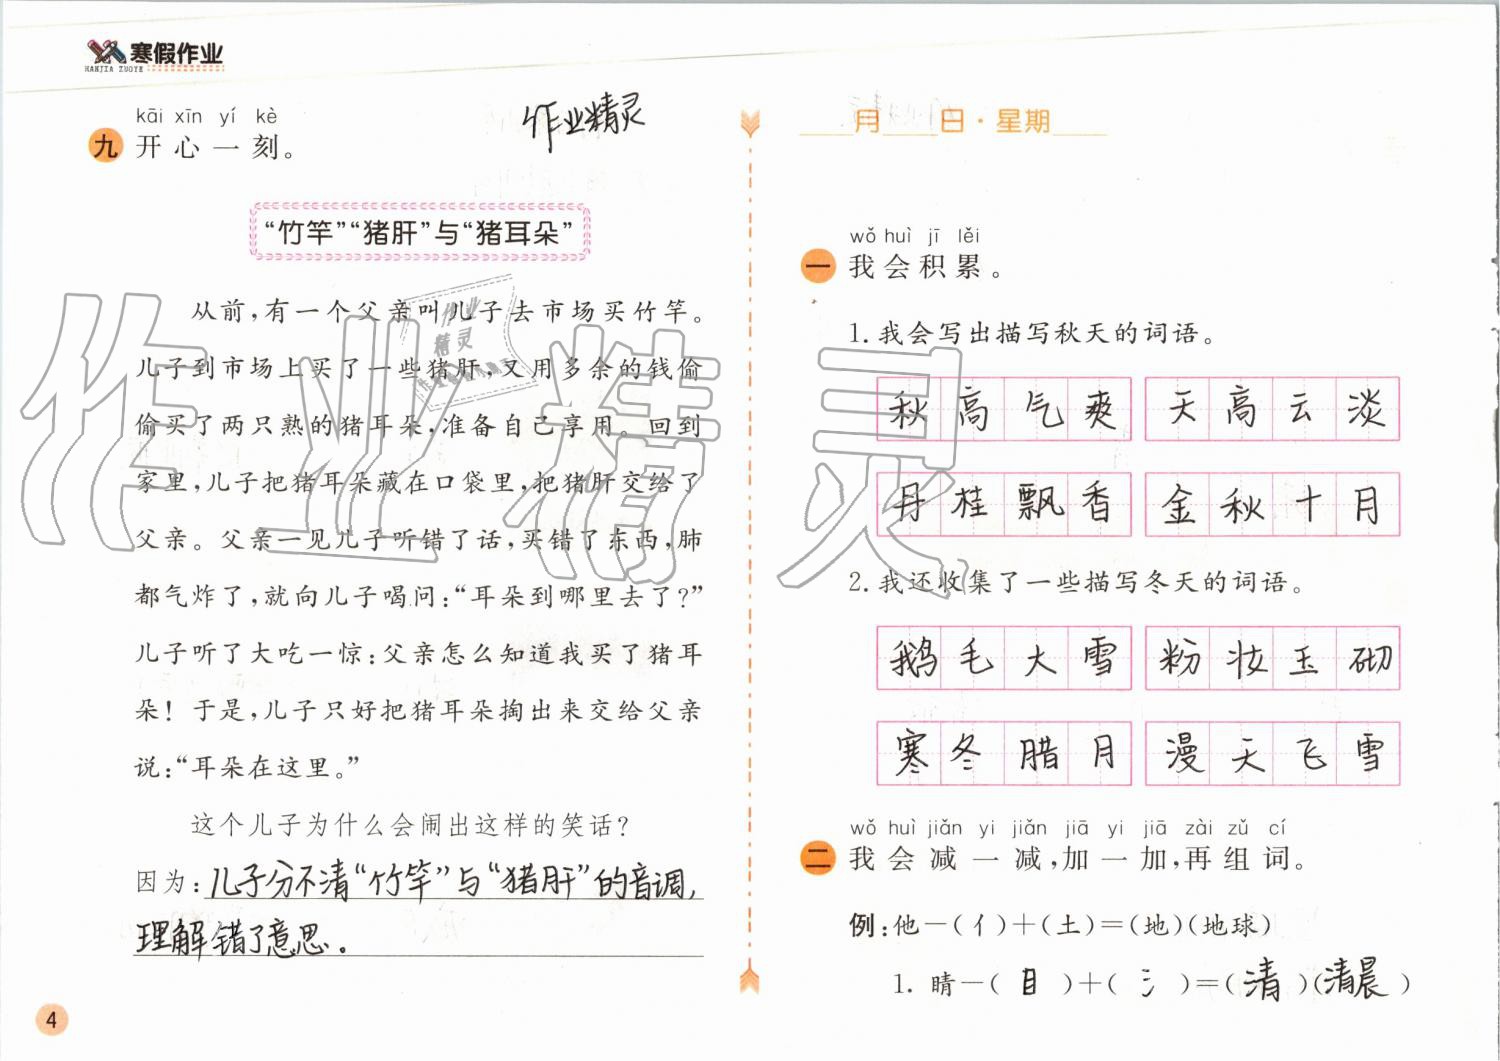 寒假作业
HANJIA ZUOYE
kāi xīn yí kè
九 开心一刻。
作业精灵
“竹竿”“猪肝”与“猪耳朵”
从前，有一个父亲叫儿子去市场买竹竿。
儿子到市场上买了一些猪肝，又用多余的钱偷
偷买了两只熟的猪耳朵，准备自己享用。回到
家里，儿子把猪耳朵藏在口袋里，把猪肝交给了
父亲。父亲一见儿子听错了话，买错了东西，肺
都气炸了，就向儿子喝问：“耳朵到哪里去了？”
儿子听了大吃一惊：父亲怎么知道我买了猪耳
朵！于是，儿子只好把猪耳朵掏出来交给父亲
说：“耳朵在这里。”
这个儿子为什么会闹出这样的笑话？
因为：儿子分不清“竹竿”与“猪肝”的音调，
理解错了意思。
4
月 日·星期
wǒ huì jī lěi
一 我会积累。
1. 我会写出描写秋天的词语。
秋高气爽 天高云淡
丹桂飘香 金秋十月
2. 我还收集了一些描写冬天的词语。
鹅毛大雪 粉妆玉砌
寒冬腊月 漫天飞雪
wǒ huì jiǎn yi jiǎn jiā yi jiā zài zǔ cí
二 我会减一减，加一加，再组词。
例：他－(亻)＋(土)＝(地)(地球)
1. 睛－(目)＋(氵)＝(清)(清晨)
作业精灵
作业
精灵